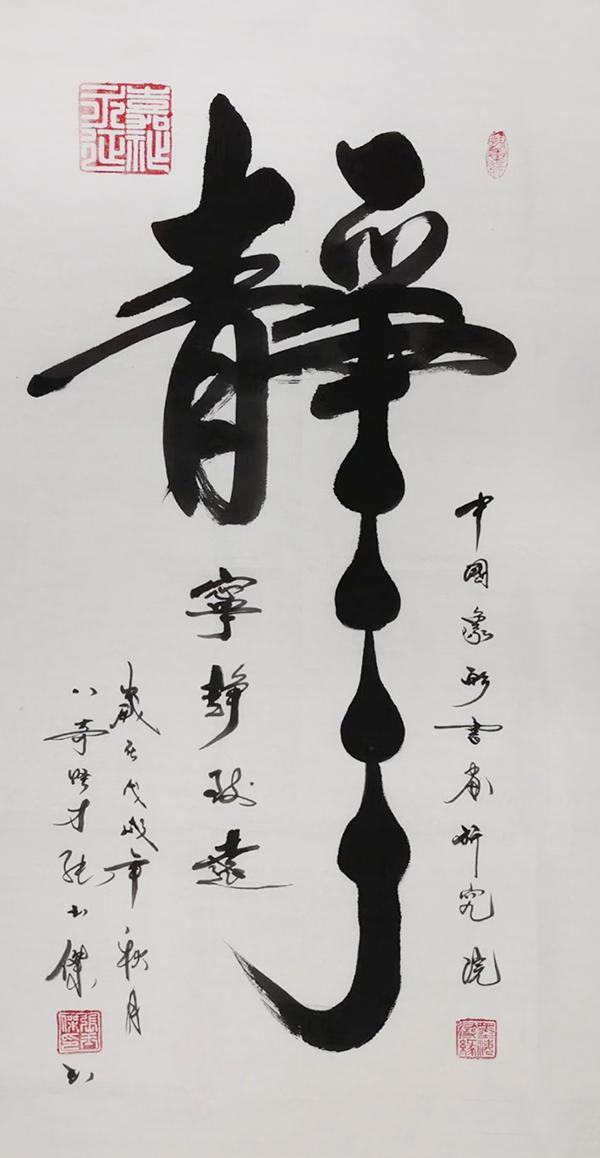 嘉祉永延
靜
中國象形書畫研究院
寧靜致遠
歲在戊戌年秋月
八奇怪才張傑
书